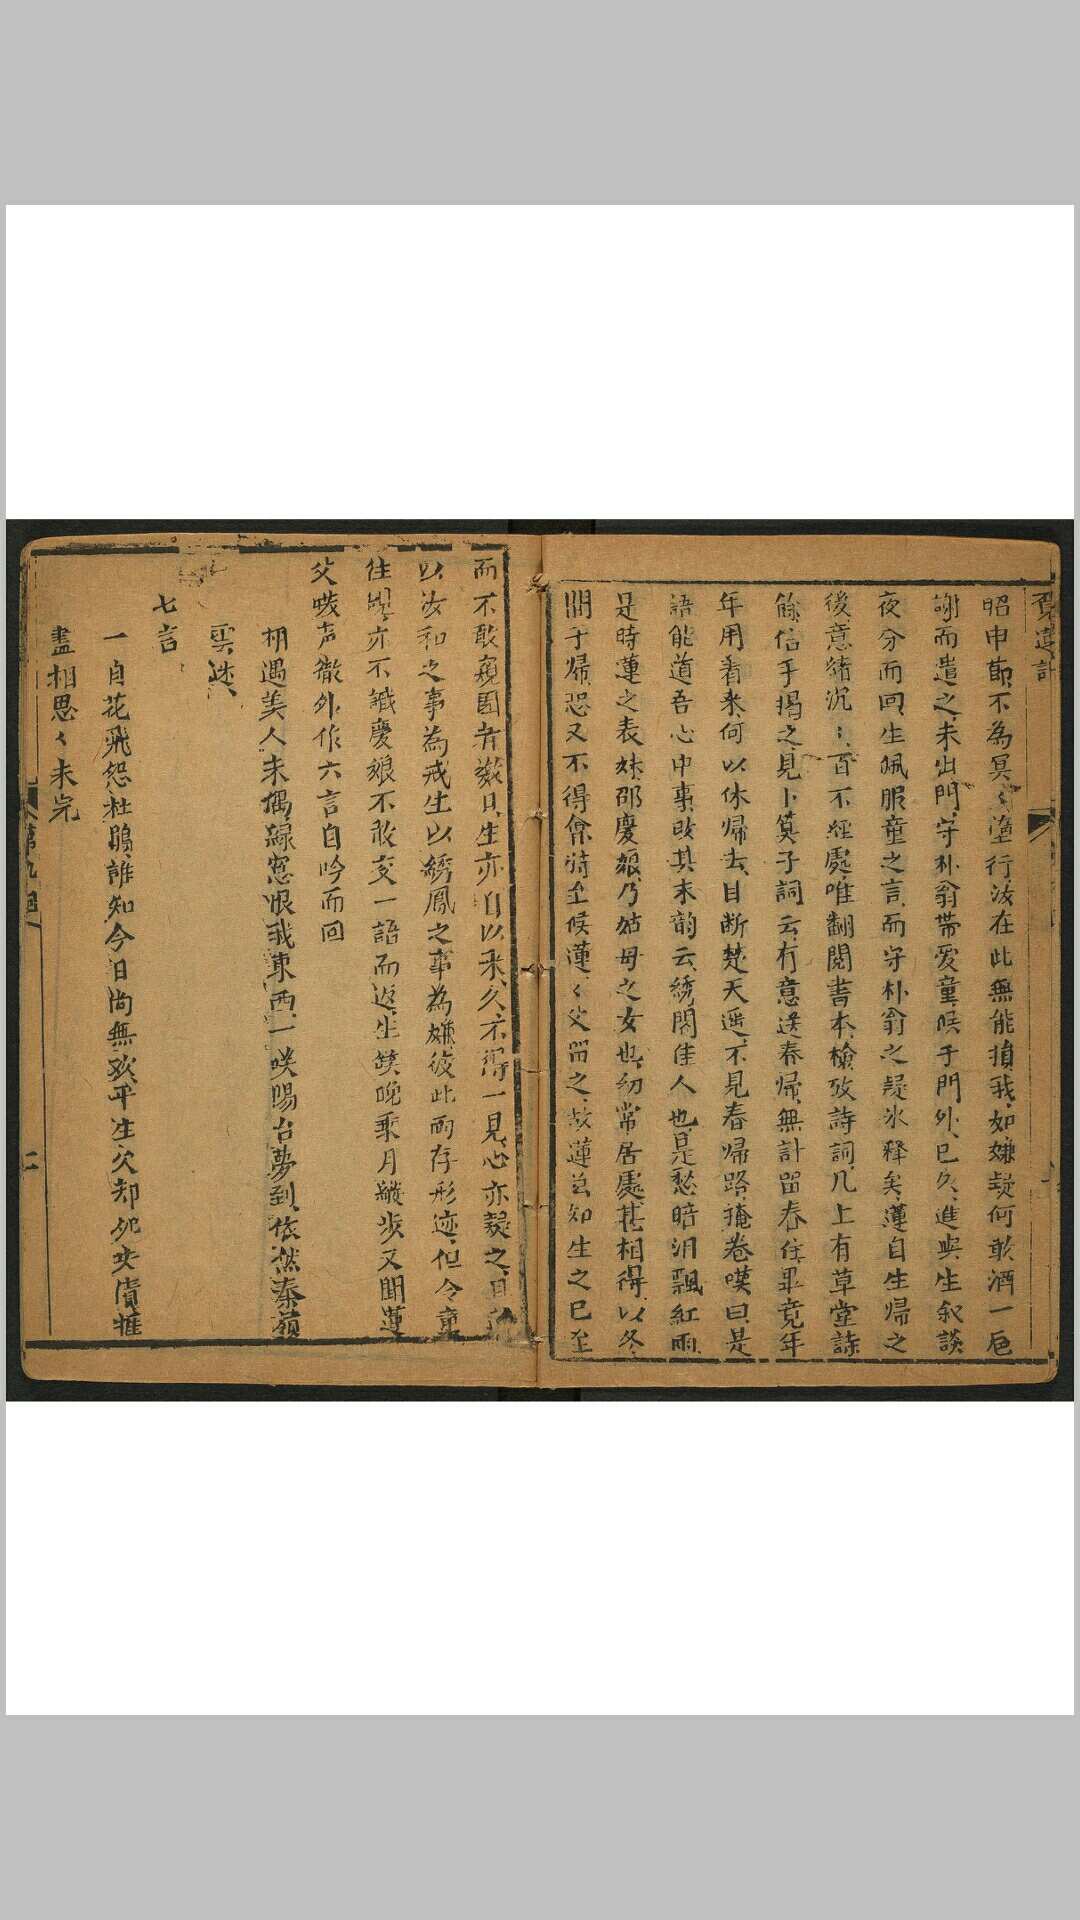 昭申節、不為冥〻墮行、汝在此無能損我、如嫌疑何敢酒一巵
謝而遣之、未出門、守朴翁帶愛童、候于門外、已久、進與生叙談
夜分而回、生佩服童之言、而守朴翁之疑氷釋矣、蓮自生歸之
後、意緒沉〻、百不經處、唯翻閱書本、檢攷詩詞、几上有草堂詩
餘、信手揭之、見卜筭子詞云、有意送春歸、無計留春住、畢竟年
年用着来、何以休歸去、目断楚天遥、不見春歸路、掩卷嘆曰、是
語能道吾心中事、改其末韵云、綉閣佳人也是愁、暗泪飄紅雨、
是時蓮之表妹邵慶娘、乃姑母之女也、幼常居處、甚相得、以冬
間于歸、恐又不得
候蓮、〻父留之、故蓮
知生之已至
而不敢窺園者
日、生亦自以来久、不得一見、心亦疑之、且
以汝和之事為戒、生以綉鳳之事為嫌、彼此両存形迹、但令童
徃
亦不識慶娘、不敢交一語而返、生
晚乘月
步、又聞蓮
父
声徹外、作六言自吟而回
栩遇美人未偶、緑窓恨我東西、一咲陽台夢到、依然秦嶺
雲迷、
七言
一自花飛怨杜鵑、誰知今日尚無欢、平生欠却
債、
盡相思〻未完
第九囬